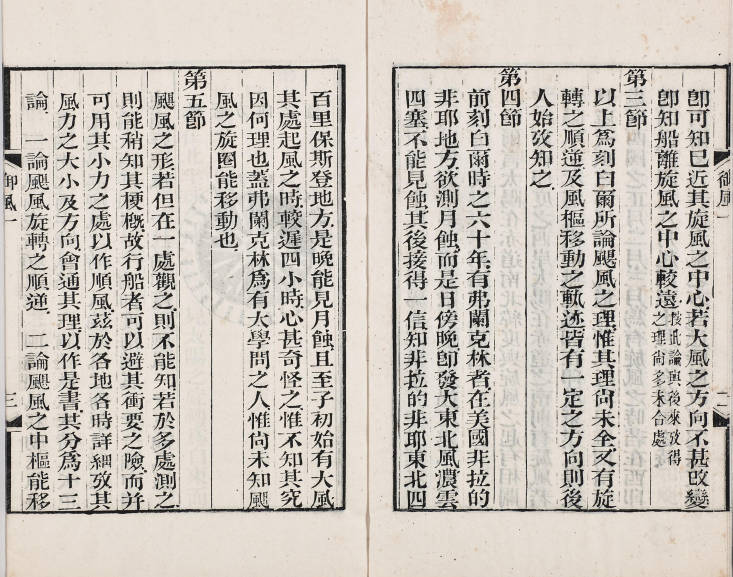 卽可知已近其旋風之中心若大風之方向不甚改變
卽知船離旋風之中心較遠按此論與後來攷得之理尙多未合處
第三節
以上爲刻白爾所論颶風之理惟其理尙未全又有旋
轉之順逆及風樞移動之軌迹皆有一定之方向則後
人始攷知之
第四節
前刻白爾時之六十年有弗蘭克林者在美國非拉的
非耶地方欲測月蝕而是日傍晚卽發大東北風濃雲
四塞不能見蝕其後接得一信知非拉的非耶東北四
御風一
二
百里保斯登地方是晚能見月蝕且至子初始有大風
其處起風之時較遲四小時心甚奇怪之惟不知其究
因何理也蓋弗蘭克林爲有大學問之人惟尙未知颶
風之旋圈能移動也
第五節
颶風之形若但在一處觀之則不能知若於多處測之
則能稍知其梗槪故行船者可以避其衝要之險而并
可用其小力之處以作順風茲於各地各時詳細攷其
風力之大小及方向會通其理以作是書其分爲十三
論一論颶風旋轉之順逆二論颶風之中樞能移
御風一
三